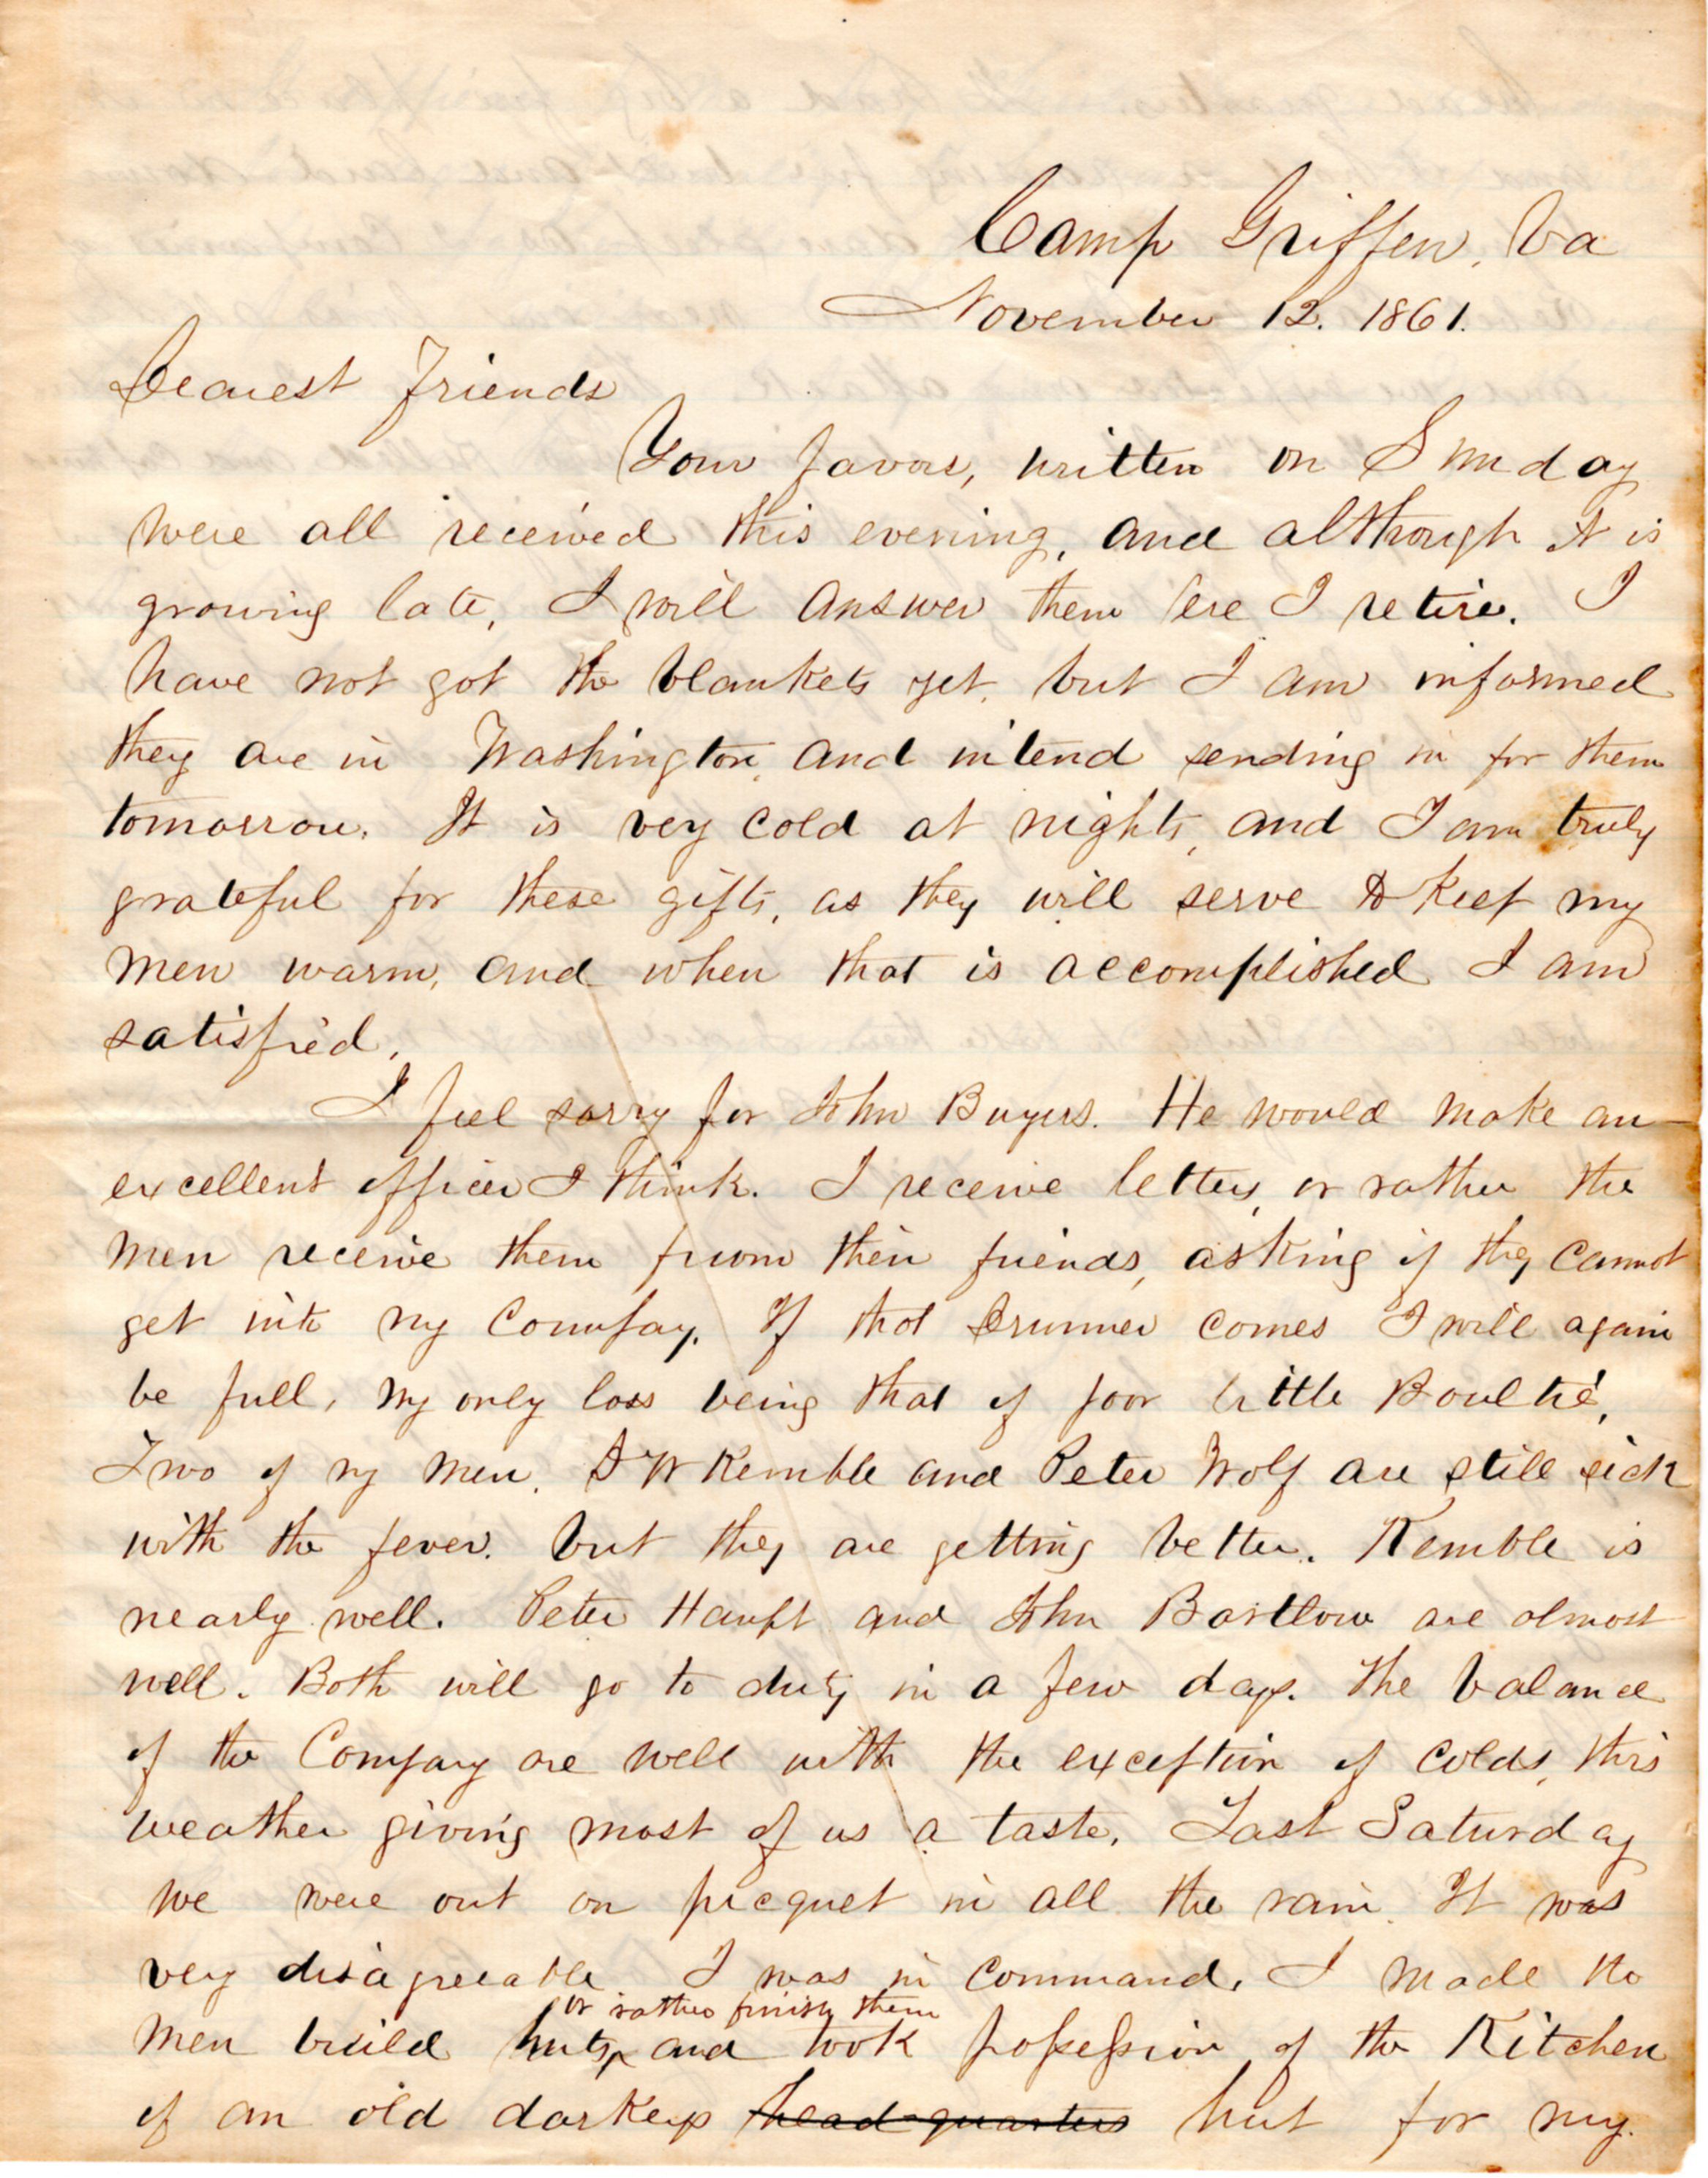 Camp Griffen, Va
November 12. 1861.
Dearest Friends
Your favors, written on Sunday
were all received this evening, and although it is
growing late, I will answer them ere I retire. I
have not got the blankets yet, but I am informed
they are in Washington, and intend sending in for them
tomorrow. It is very cold at nights, and I am truly
grateful for these gifts, as they will serve to keep my
men warm, and when that is accomplished I am
satisfied.
I feel sorry for John Buyers. He would make an
excellent officer I think. I receive letters, or rather the
men receive them from their friends, asking if they cannot
get into my Company. If that Drummer comes I will again
be full, my only loss being that of poor little Boultie.
Two of my men, D W Kemble and Peter Wolf are still sick
with the fever, but they are getting better. Kemble is
nearly well. Peter Haupt and John Bartlow are almost
well. Both will go to duty in a few days. The balance
of the Company are well with the exception of colds, this
weather giving most of us a taste. Last Saturday
we were out on picquet in all the rain. It was
very disagreeable I was in command. I made the
or rather finish them
men build huts, and took possession of the Kitchen
of an old darkeys head-quarters hut for my